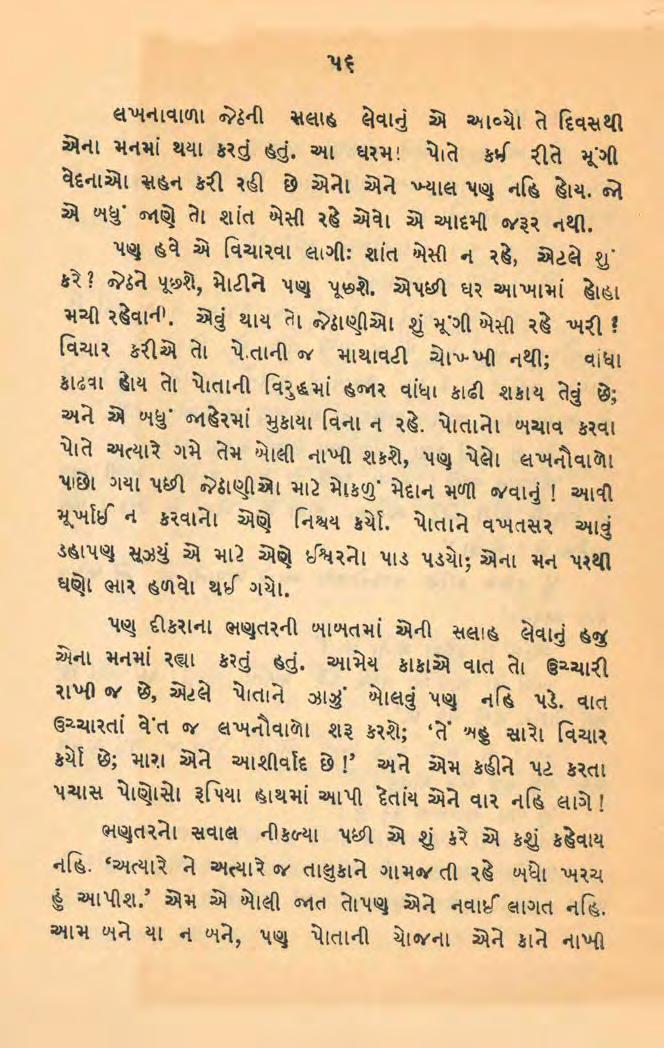 ૫૬
લખનાવાળા જેઠની સલાહ લેવાનું એ આવ્યો તે દિવસથી
એના મનમાં થયા કરતું હતું. આ ઘરમ! પોતે કઈ રીતે મૂંગી
વેદનાઓ સહન કરી રહી છે એનો એને ખ્યાલ પણ નહિ હોય. જો
એ બધું જાણે તો શાંત બેસી રહે એવો એ આદમી જરૂર નથી.
પણ હવે એ વિચારવા લાગી: શાંત બેસી ન રહે, એટલે શું
કરે? જેઠને પૂછશે, મોટીને પણ પૂછશે. એપછી ઘર આખામાં હોહા
મચી રહેવાની. એવું થાય તો જેઠાણીઓ શું મૂંગી બેસી રહે ખરી ?
વિચાર કરીએ તો પોતાની જ માથાવટી ચોખ્ખી નથી; વાંધા
કાઢવા હોય તો પોતાની વિરુદ્ધમાં હજાર વાંધા કાઢી શકાય તેવું છે;
અને એ બધું જાહેરમાં મુકાયા વિના ન રહે. પોતાનો બચાવ કરવા
પોતે અત્યારે ગમે તેમ બોલી નાખી શકશે, પણ પેલો લખનૌવાળો
પાછો ગયા પછી જેઠાણીઓ માટે મોકળું મેદાન મળી જવાનું ! આવી
મૂર્ખાઈ ન કરવાનો એણે નિશ્ચય કર્યો. પોતાને વખતસર આવું
ડહાપણ સૂઝયું એ માટે એણે ઈશ્વરનો પાડ પડયો; એના મન પરથી
ઘણો ભાર હળવો થઈ ગયો.
પણ દીકરાના ભણતરની બાબતમાં એની સલાહ લેવાનું હજુ
એના મનમાં રહ્યા કરતું હતું. આમેય કાકાએ વાત તો ઉચ્ચારી
રાખી જ છે, એટલે પોતાને ઝાઝું બોલવું પણ નહિ પડે. વાત
ઉચ્ચારતાં વેંત જ લખનૌવાળો શરૂ કરશે; ‘તેં બહુ સારો વિચાર
કર્યો છે; મારા એને આશીર્વાદ છે !’ અને એમ કહીને પટ કરતા
પચાસ પોણોસો રૂપિયા હાથમાં આપી દેતાંય એને વાર નહિ લાગે !
ભણતરનો સવાલ નીકળ્યા પછી એ શું કરે એ કશું કહેવાય
નહિ. ‘અત્યારે ને અત્યારે જ તાલુકાને ગામ જતી રહે બધો ખરચ
હું આપીશ.’ એમ એ બોલી જાત તોપણ એને નવાઈ લાગત નહિ.
આમ બને યા ન બને, પણ પોતાની યોજના એને કાને નાખી